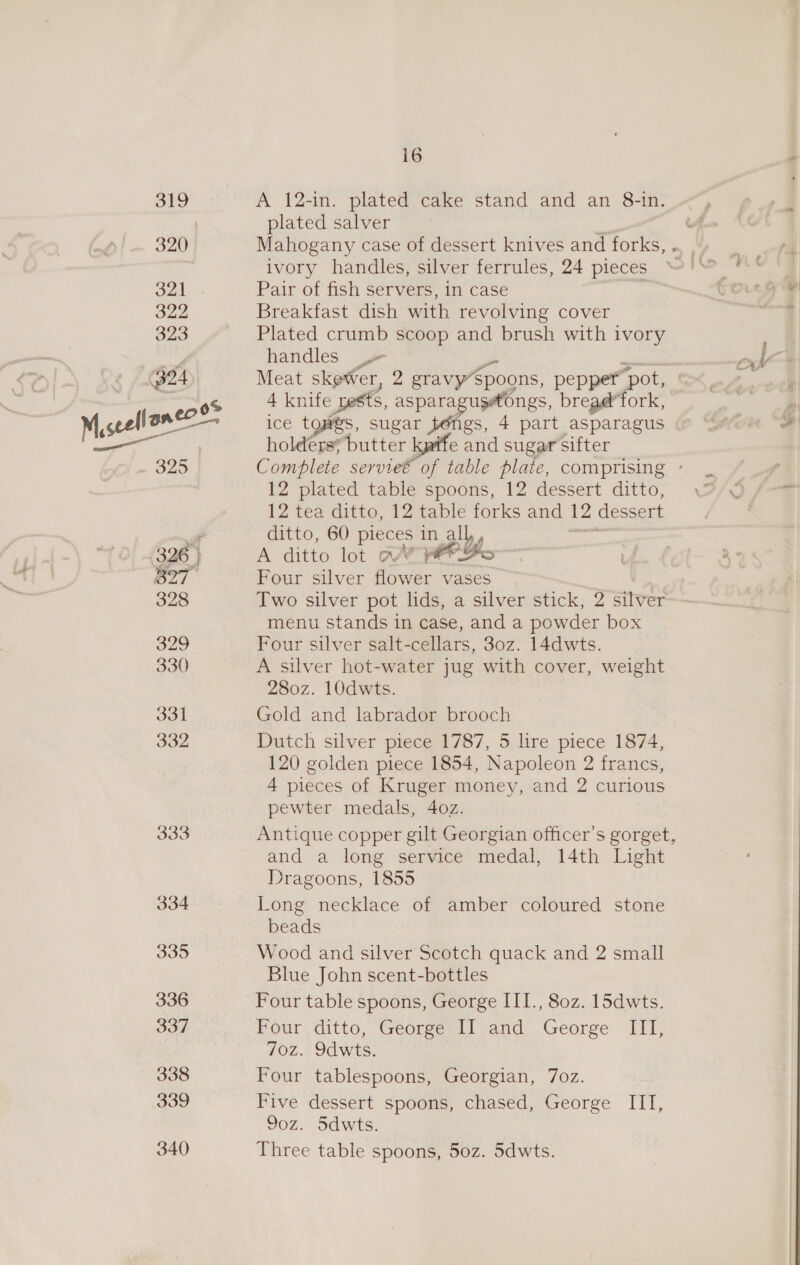 16
319 A 12-in. plated cake stand and an 8-in.
plated salver
320 Mahogany case of dessert knives and forks,
ivory handles, silver ferrules, 24 pieces
321 Pair of fish servers, in case
322 Breakfast dish with revolving cover
323 Plated crumb scoop and brush with ivory
handles
324 Meat skewer, 2 gravy spoons, pepper pot,
4 knife rests, asparagus tongs, bread fork,
Miscellaneous
ice tongs, sugar tongs, 4 part asparagus
holders, butter knife and sugar sifter
325 Complete serviet of table plate, comprising
12 plated table spoons, 12 dessert ditto,
12 tea ditto, 12 table forks and 12 dessert
ditto, 60 pieces in all
326 A ditto lot
327 Four silver flower vases
328 Two silver pot lids, a silver stick, 2 silver
menu stands in case, and a powder box
329 Four silver salt-cellars, 3oz. 14dwts.
330 A silver hot-water jug with cover, weight
28oz. 10dwts.
331 Gold and labrador brooch
332 Dutch silver piece 1787, 5 lire piece 1874,
120 golden piece 1854, Napoleon 2 francs,
4 pieces of Kruger money, and 2 curious
pewter medals, 4oz.
333 Antique copper gilt Georgian officer's gorget,
and a long service medal, 14th Light
Dragoons, 1855
334 Long necklace of amber coloured stone
beads
335 Wood and silver Scotch quack and 2 small
Blue John scent-bottles
336 Four table spoons, George III., 8oz. 15dwts.
337 Four ditto, George II and George III,
7oz. 9dwts.
338 Four tablespoons, Georgian, 7oz.
339 Five dessert spoons, chased, George III,
9oz. 5dwts.
340 Three table spoons, 5oz. 5dwts.